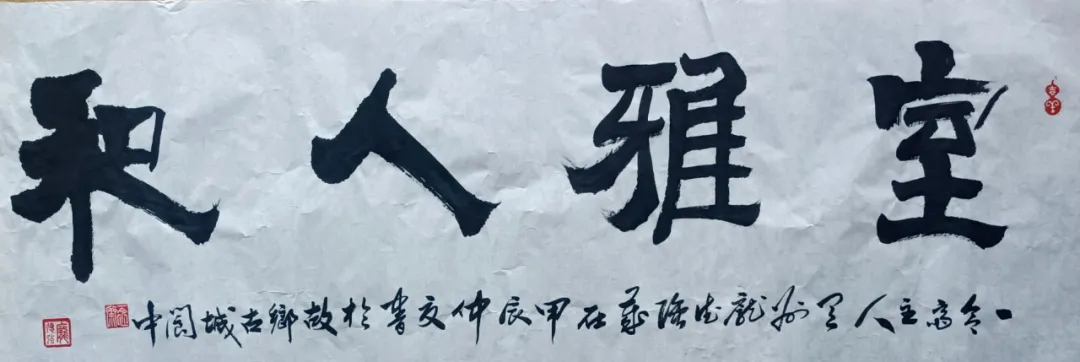 室雅人和
一主人龍歲在甲辰仲夏書於故鄉古城閬中